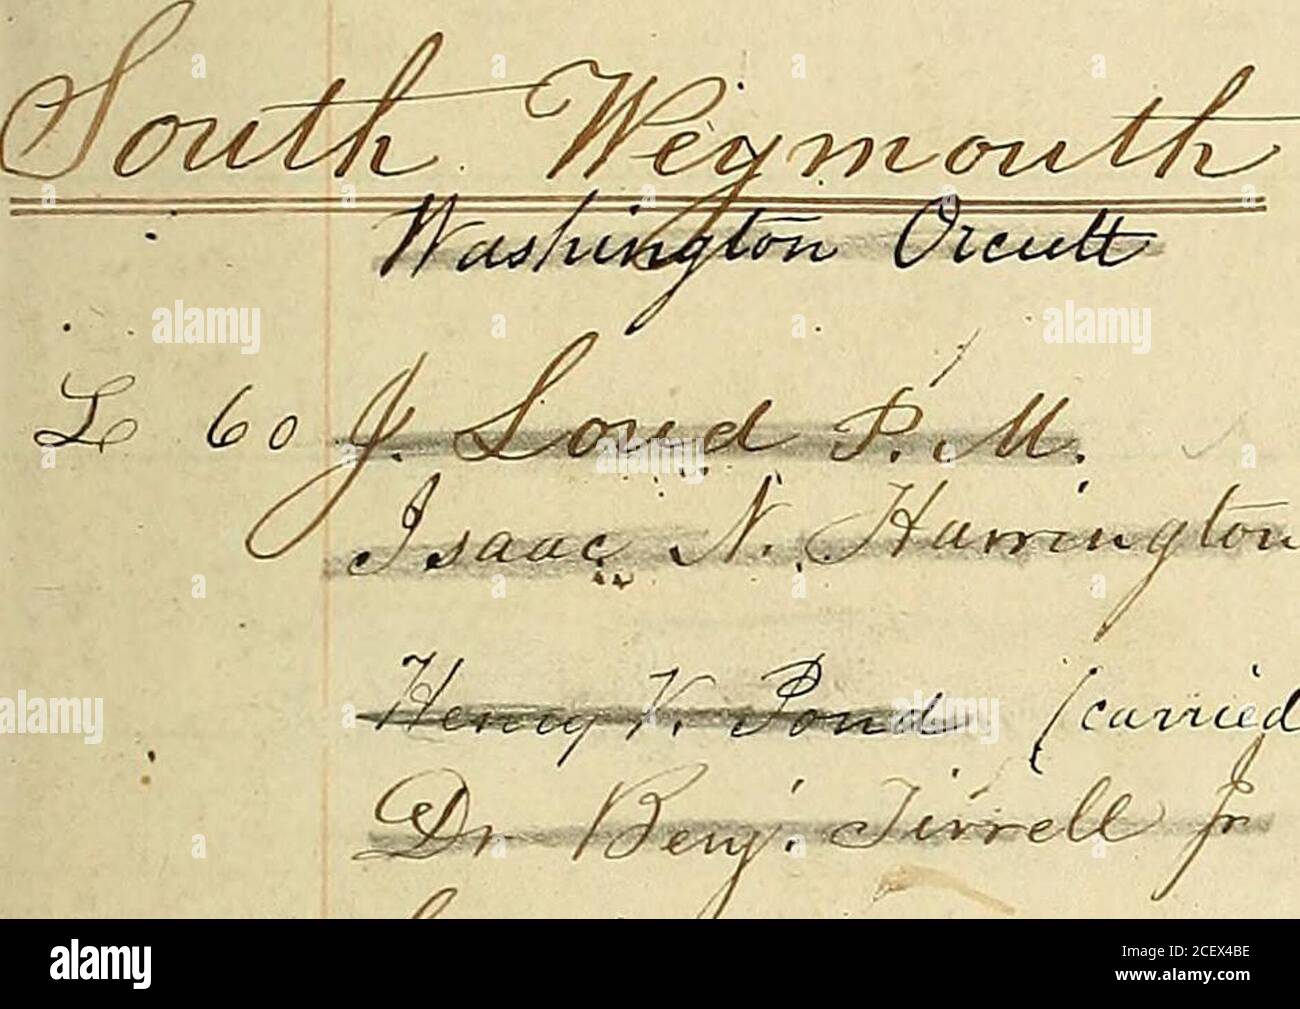 South Weymouth
Washington Orcutt
L 60 J. Loud P. M.
Isaac N. Harrington
Henry V. Pond (carried
Dr Benj. Tirrell Jr
alamy
Image ID: 2CEX4BE
www.alamy.com